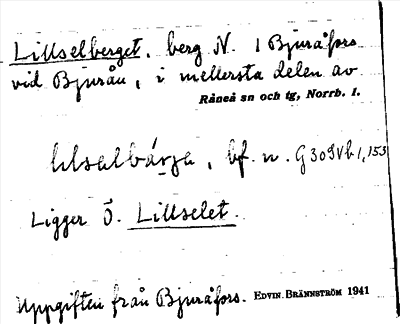 Lillselberget, berg N. 1 Bjuråfors
vid Bjurån, i mellersta delen av
Råneå sn och tg, Norrb. l.
lılsəlbárgə, bf. n. G309Vb1,153
Ligger Ö. Lillselet.
Uppgiften från Bjuråfors. EDVIN. BRÄNNSTRÖM 1941